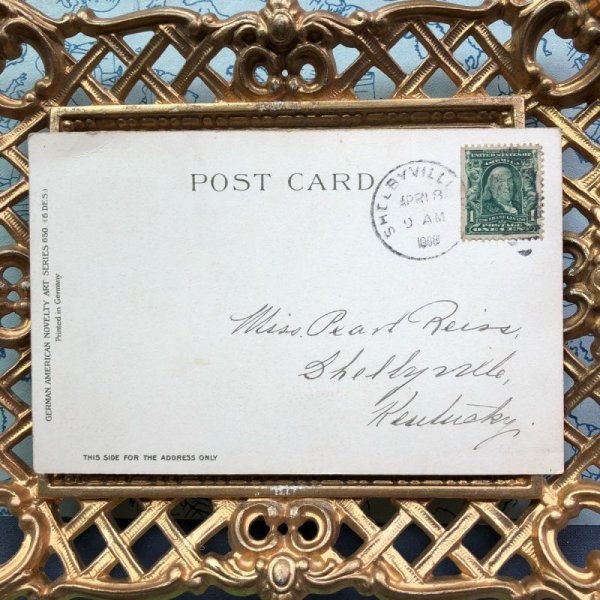 POST CARD
SHELBYVILLE
APR 18
9 AM
1908
UNITED STATES OF AMERICA
1 1
POSTAGE
ONE CENT
GERMAN AMERICAN NOVELTY ART SERIES 650. (6 DES.)
Printed in Germany
Miss. Pearl Reiss,
Shelbyville,
Kentucky.
THIS SIDE FOR THE ADDRESS ONLY